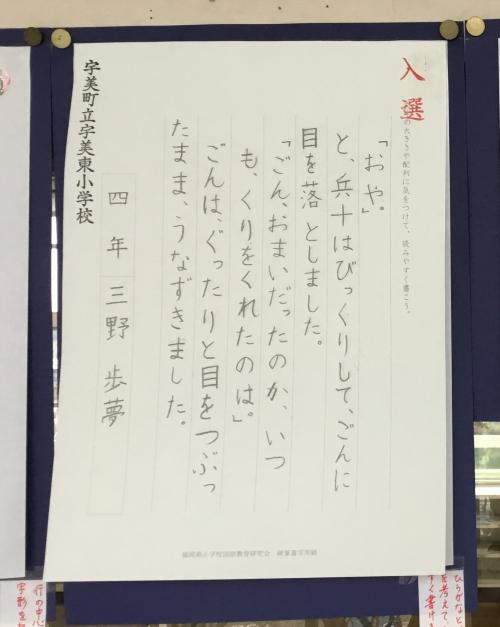 入選
の大きさや配列に気をつけて、読みやすく書こう。
「おや。」
と、兵十はびっくりして、ごんに
目を落としました。
「ごん、おまいだったのか、いつ
も、くりをくれたのは。」
ごんは、ぐったりと目をつぶっ
たまま、うなずきました。
宇美町立宇美東小学校
四年 三野歩夢
福岡県小学校国語教育研究会 硬筆書写用紙
行の中心
字形を
ひらがなと
を考えて、
すく書け